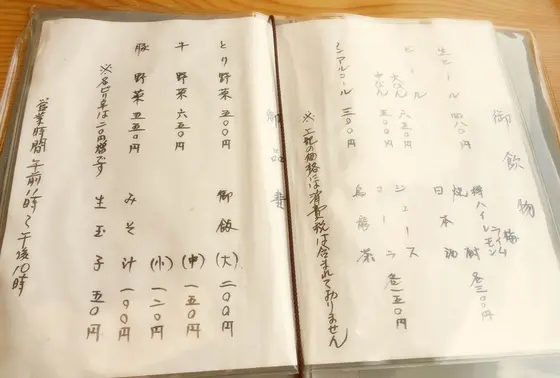 御飲物
生ビール 四八〇円
ビール
大びん 六五〇円
中びん 五〇〇円
ノンアルコール 三〇〇円
梅
ライム
酎ハイレモン
焼酎 各三〇〇円
日本酒
ジュース
コーラ 各一五〇円
烏龍茶
※上記の価格には消費税は含まれておりません
御品書
とり野菜 五〇〇円
牛野菜 六五〇円
豚野菜 五五〇円
※各ピリ辛は二〇円増です
御飯(大)二〇〇円
(中)一五〇円
(小)一二〇円
みそ汁 一〇〇円
生玉子 五〇円
営業時間 午前11時〜午後10時